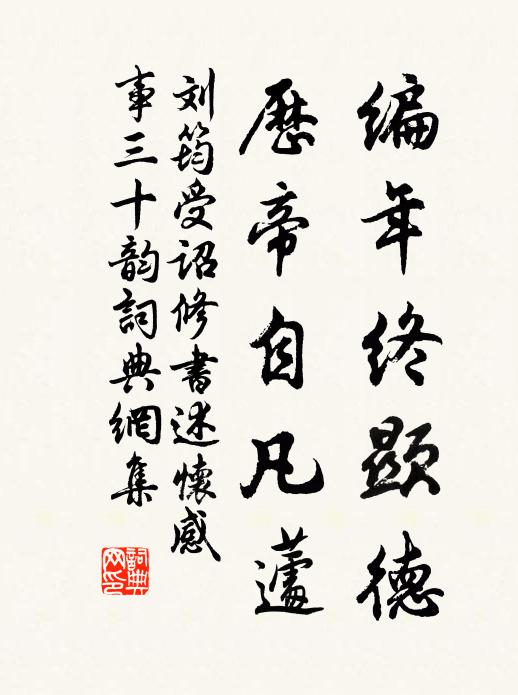 编年终显德
历帝自凡蘧
刘筠受诏修书述怀感
事三十韵词典网集
词典
网印